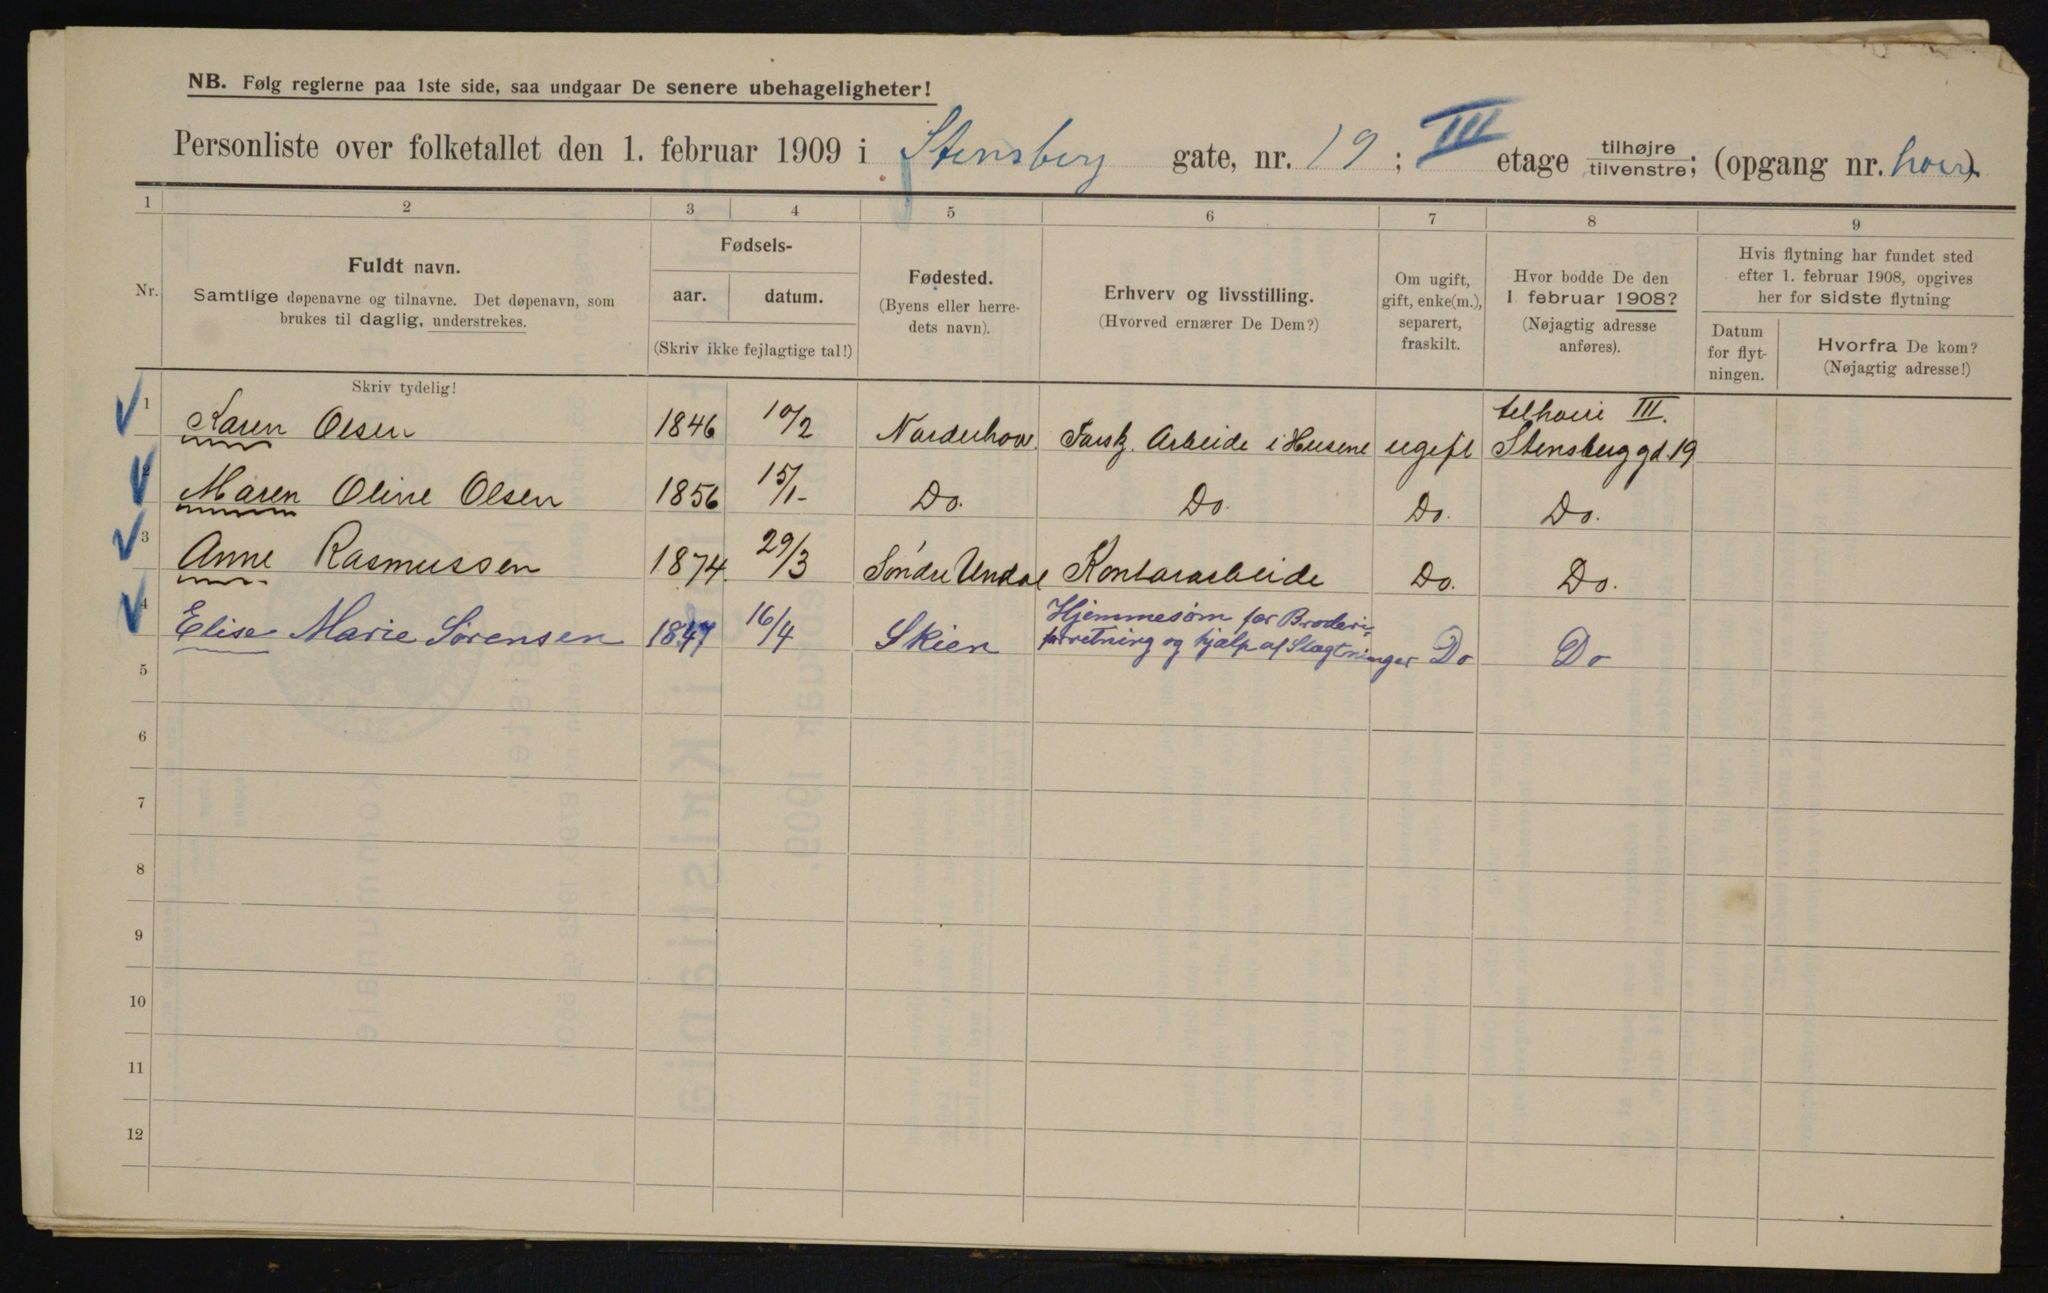 NB. Følg reglerne paa 1ste side, saa undgaar De senere ubehageligheter!
Personliste over folketallet den 1. februar 1909 i Stensberg gate, nr. 19; III etage tilhøjre / tilvenstre; (opgang nr. hoire).
1 2 3 4 5 6 7 8 9
Nr.
Fuldt navn.
Samtlige døpenavne og tilnavne. Det døpenavn, som
brukes til daglig, understrekes.
Skriv tydelig!
Fødsels-
aar. datum.
(Skriv ikke fejlagtige tal!)
Fødested.
(Byens eller herre-
dets navn).
Erhverv og livsstilling.
(Hvorved ernærer De Dem?)
Om ugift,
gift, enke(m.),
separert,
fraskilt.
Hvor bodde De den
1. februar 1908?
(Nøjagtig adresse
anføres).
Hvis flytning har fundet sted
efter 1. februar 1908, opgives
her for sidste flytning
Datum
for flyt-
ningen.
Hvorfra De kom?
(Nøjagtig adresse!)
tilhoire III.
1 Karen Olsen 1846 10/2 Norderhov. Forsk. Arbeide i Husene ugift Stensberggd. 19
2 Maren Oline Olsen 1856 15/1- Do. Do. Do. Do.
3 Anne Rasmussen 1874. 29/3 Søndre Undal Kontorarbeide Do. Do.
4 Elise Marie Sørensen 1847 16/4 Skien Hjemmesøm for Broderi-
forretning og hjælp af Slægtninger Do Do
5
6
7
8
9
10
11
12